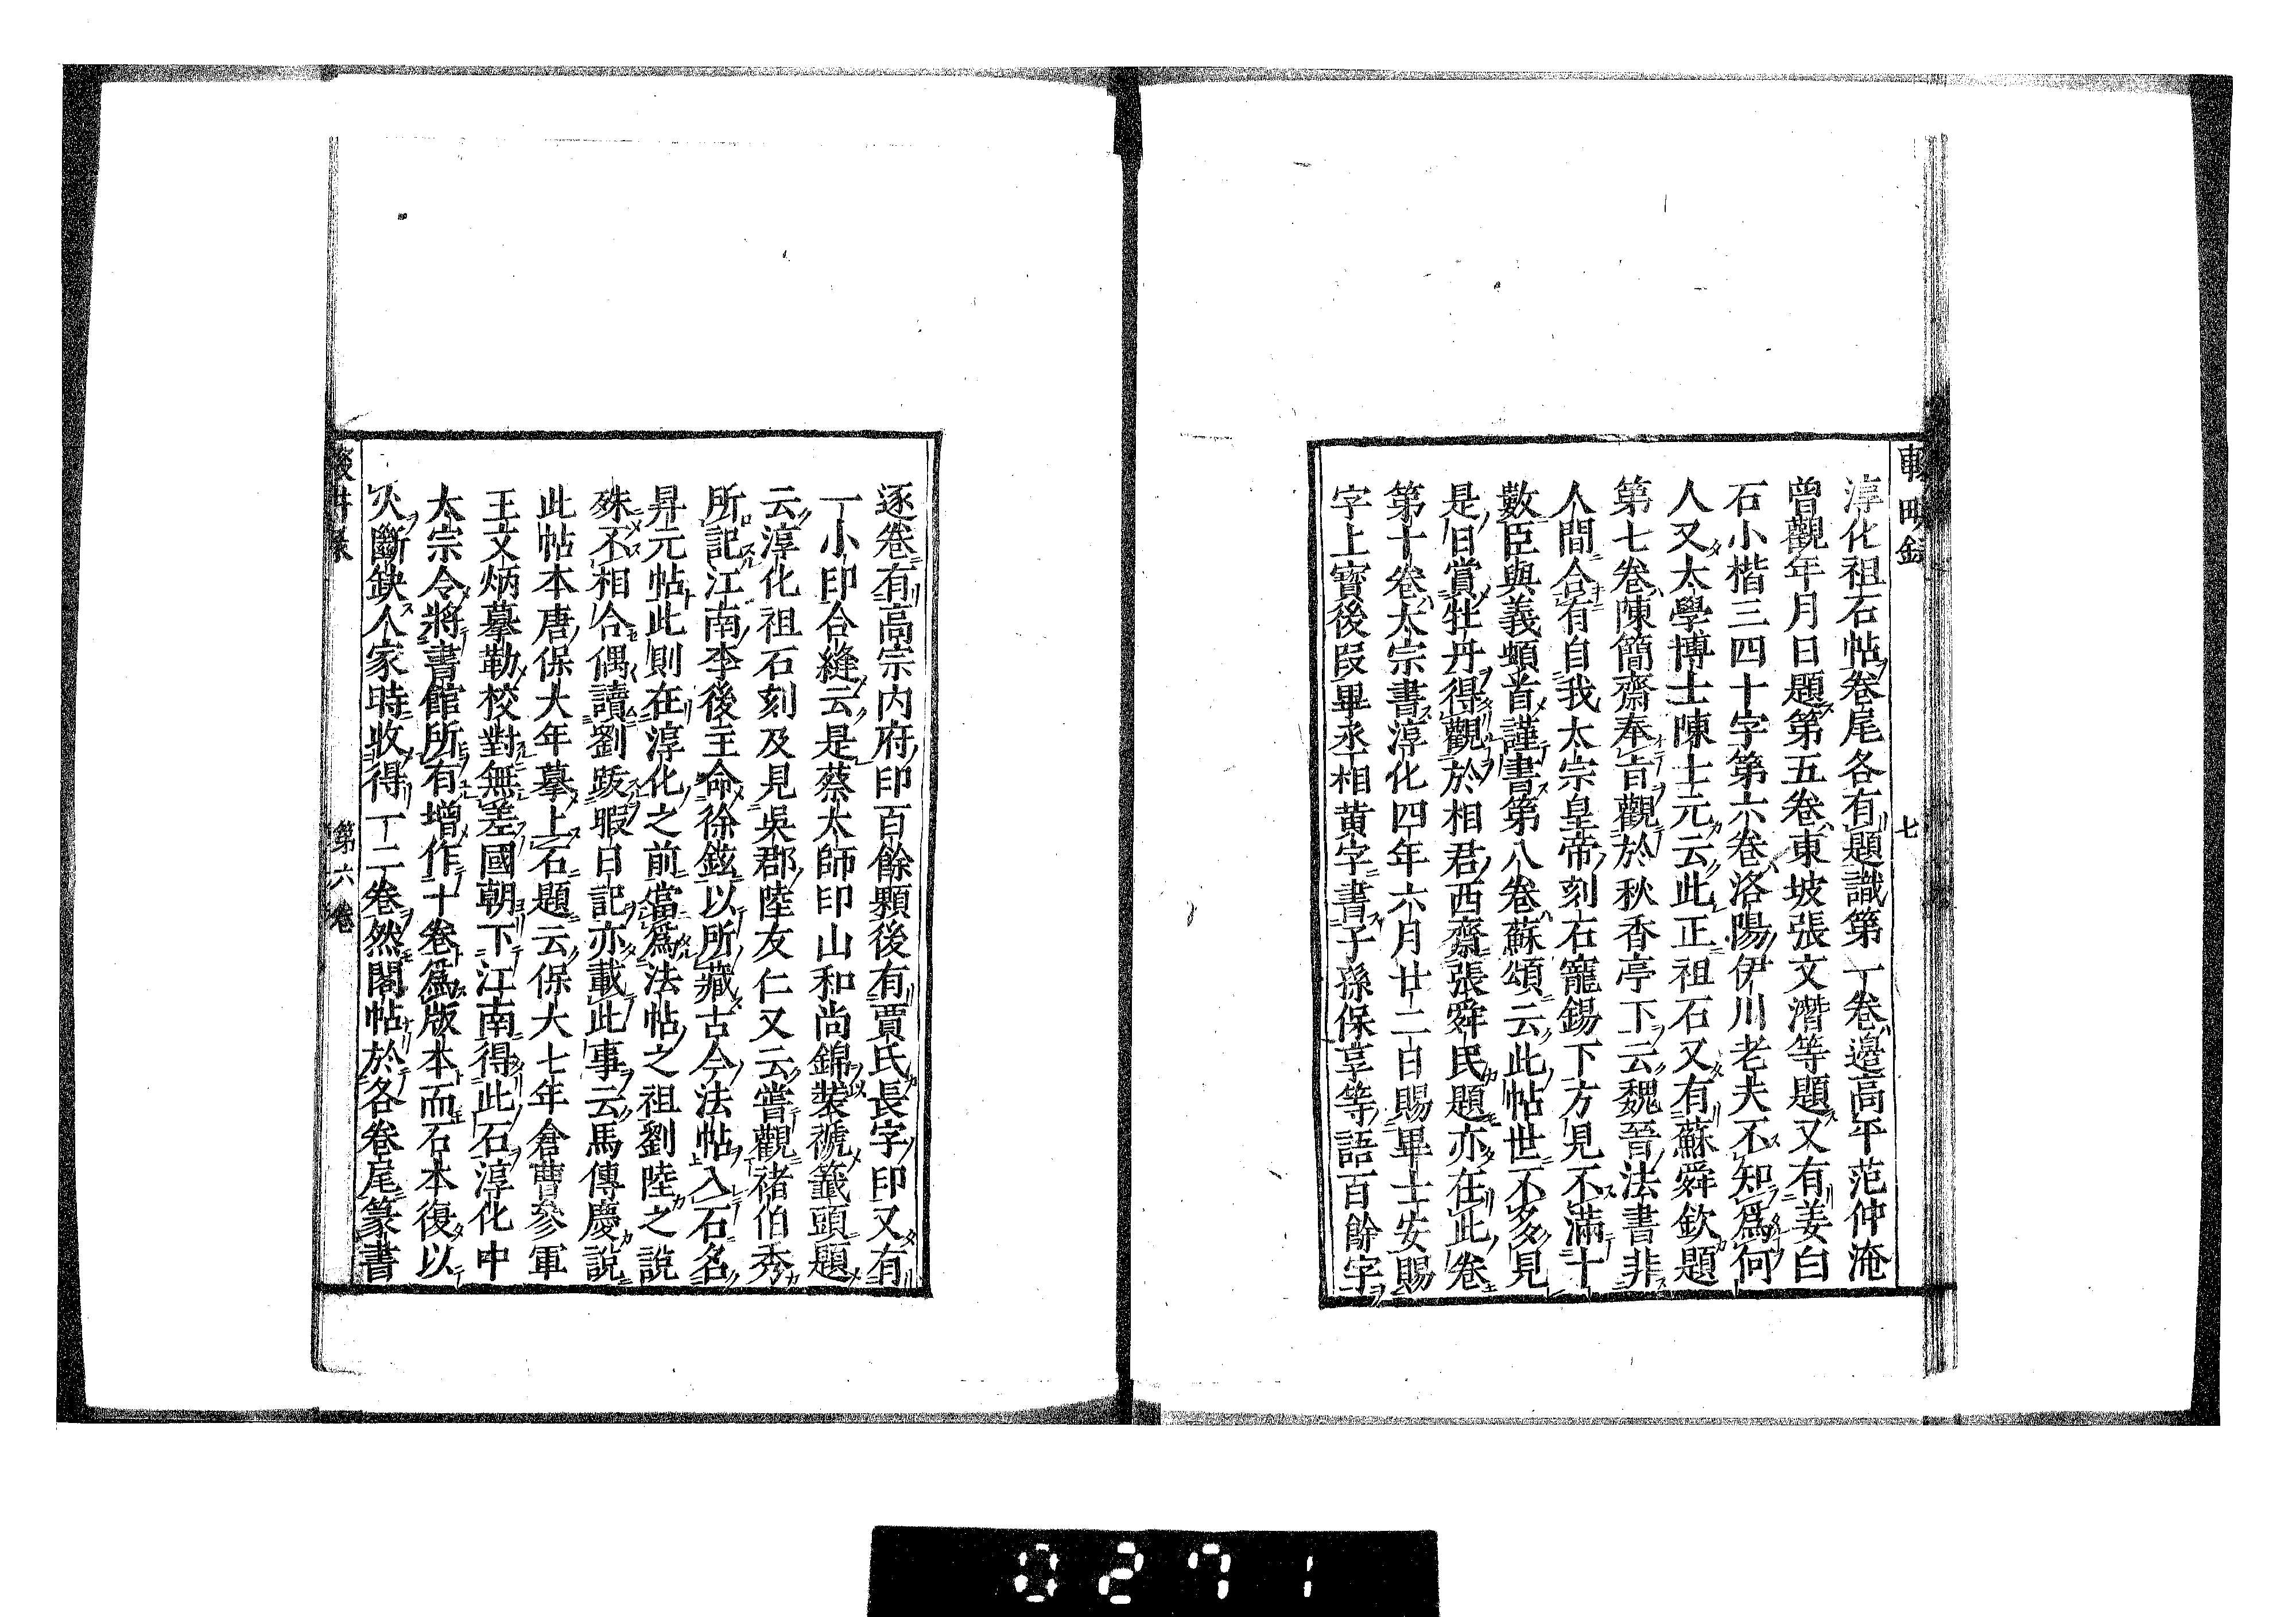 輟畊録
七
淳化祖石帖卷尾各有題識第一卷邊高平范仲淹
曾觀年月日題第五卷東坡張文潛等題又有姜白
石小楷三四十字第六卷洛陽伊川老夫不知爲何
人又太學博士陳士元云此正祖石又有蘇舜欽題
第七卷陳簡齋奉旨觀於秋香亭下云魏晉法書非
人間合有自我太宗皇帝刻石寵錫下方見不滿十
數臣與義頓首謹書第八卷蘇頌云此帖世不多見
是日賞牡丹得觀於相君西齋張舜民題亦在此卷
第十卷太宗書淳化四年六月廿二日賜畢士安賜
字上寳後段畢丞相黄字書子孫保享等語百餘字
逐卷有高宗内府印百餘顆後有賈氏長字印又有
一小印合縫云是蔡太師印山和尚錦裝褫籤頭題
云淳化祖石刻及見吳郡陸友仁又云嘗觀褚伯秀
所記江南李後主命徐鉉以所藏古今法帖入石名
昇元帖此則在淳化之前當爲法帖之祖劉陸之説
殊不相合偶讀劉跂暇日記亦載此事云馬傳慶説
此帖本唐保大年摹上石題云保大七年倉曹參軍
王文炳摹勒校對無差國朝下江南得此石淳化中
太宗令將書館所有增作十卷爲版本而石本復以
火斷缺人家時收得一二卷然閣帖於各卷尾篆書
第六卷